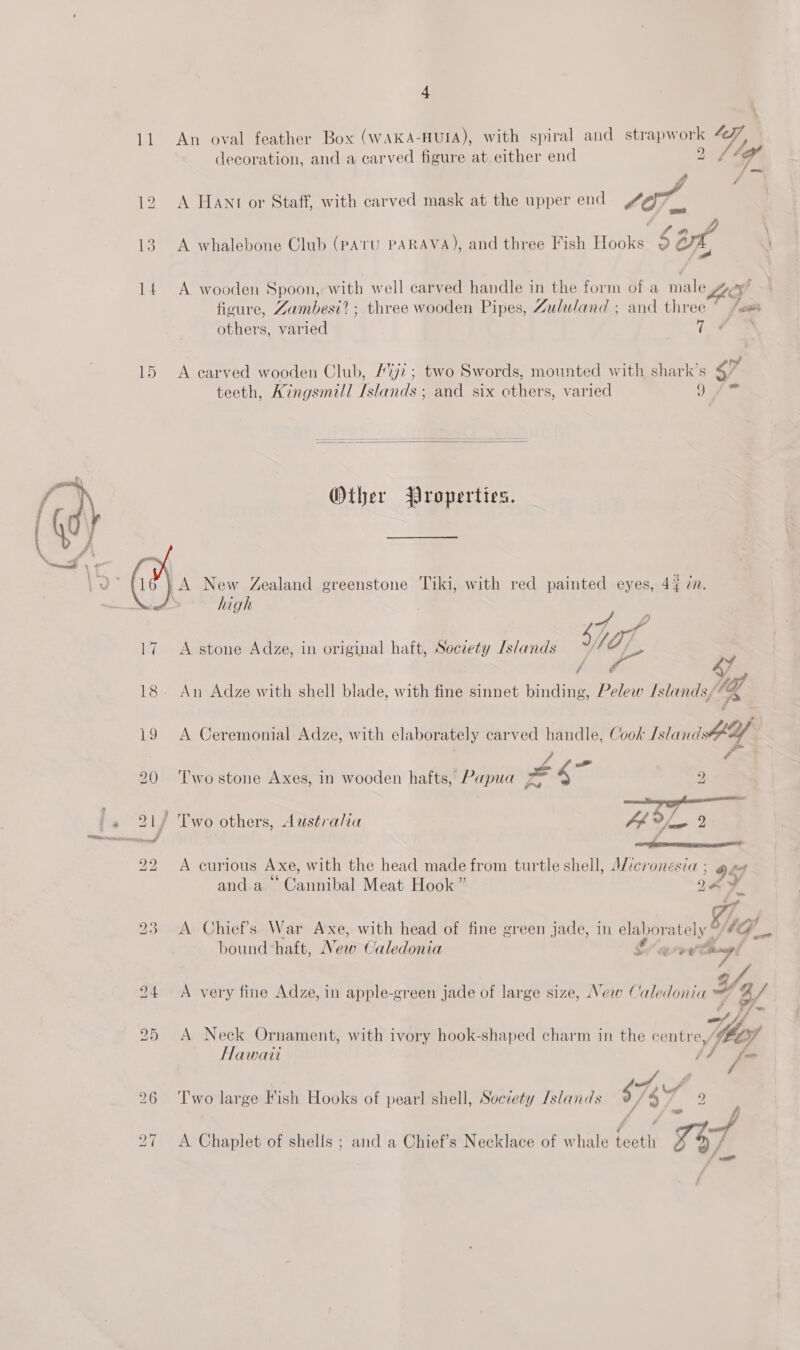 4
11 An oval feather Box (WAKA-HUIA), with spiral and strapwork
decoration, and a carved figure at either end 2
12 A HANI or Staff, with carved mask at the upper end
13 A whalebone Club (PATU PARAVA), and three Fish Hooks 5
14 A wooden Spoon, with well carved handle in the form of a male
figure, Zambesi?; three wooden Pipes, Zululand; and three
others, varied 7
15 A carved wooden Club, Fiji; two Swords, mounted with shark's
teeth, Kingsmill Islands; and six others, varied 9
Other Properties.
16 A New Zealand greenstone Tiki, with red painted eyes, 4¾ in.
high
17 A stone Adze, in original haft, Society Islands
18 An Adze with shell blade, with fine sinnet binding, Pelew Islands
19 A Ceremonial Adze, with elaborately carved handle, Cook Islands
20 Two stone Axes, in wooden hafts, Papua 2
21 Two others, Australia 2
22 A curious Axe, with the head made from turtle shell, Micronesia;
and a "Cannibal Meat Hook" 2
23 A Chief's War Axe, with head of fine green jade, in elaborately
bound haft, New Caledonia
24 A very fine Adze, in apple-green jade of large size, New Caledonia
25 A Neck Ornament, with ivory hook-shaped charm in the centre,
Hawaii
26 Two large Fish Hooks of pearl shell, Society Islands 2
27 A Chaplet of shells; and a Chief's Necklace of whale teeth